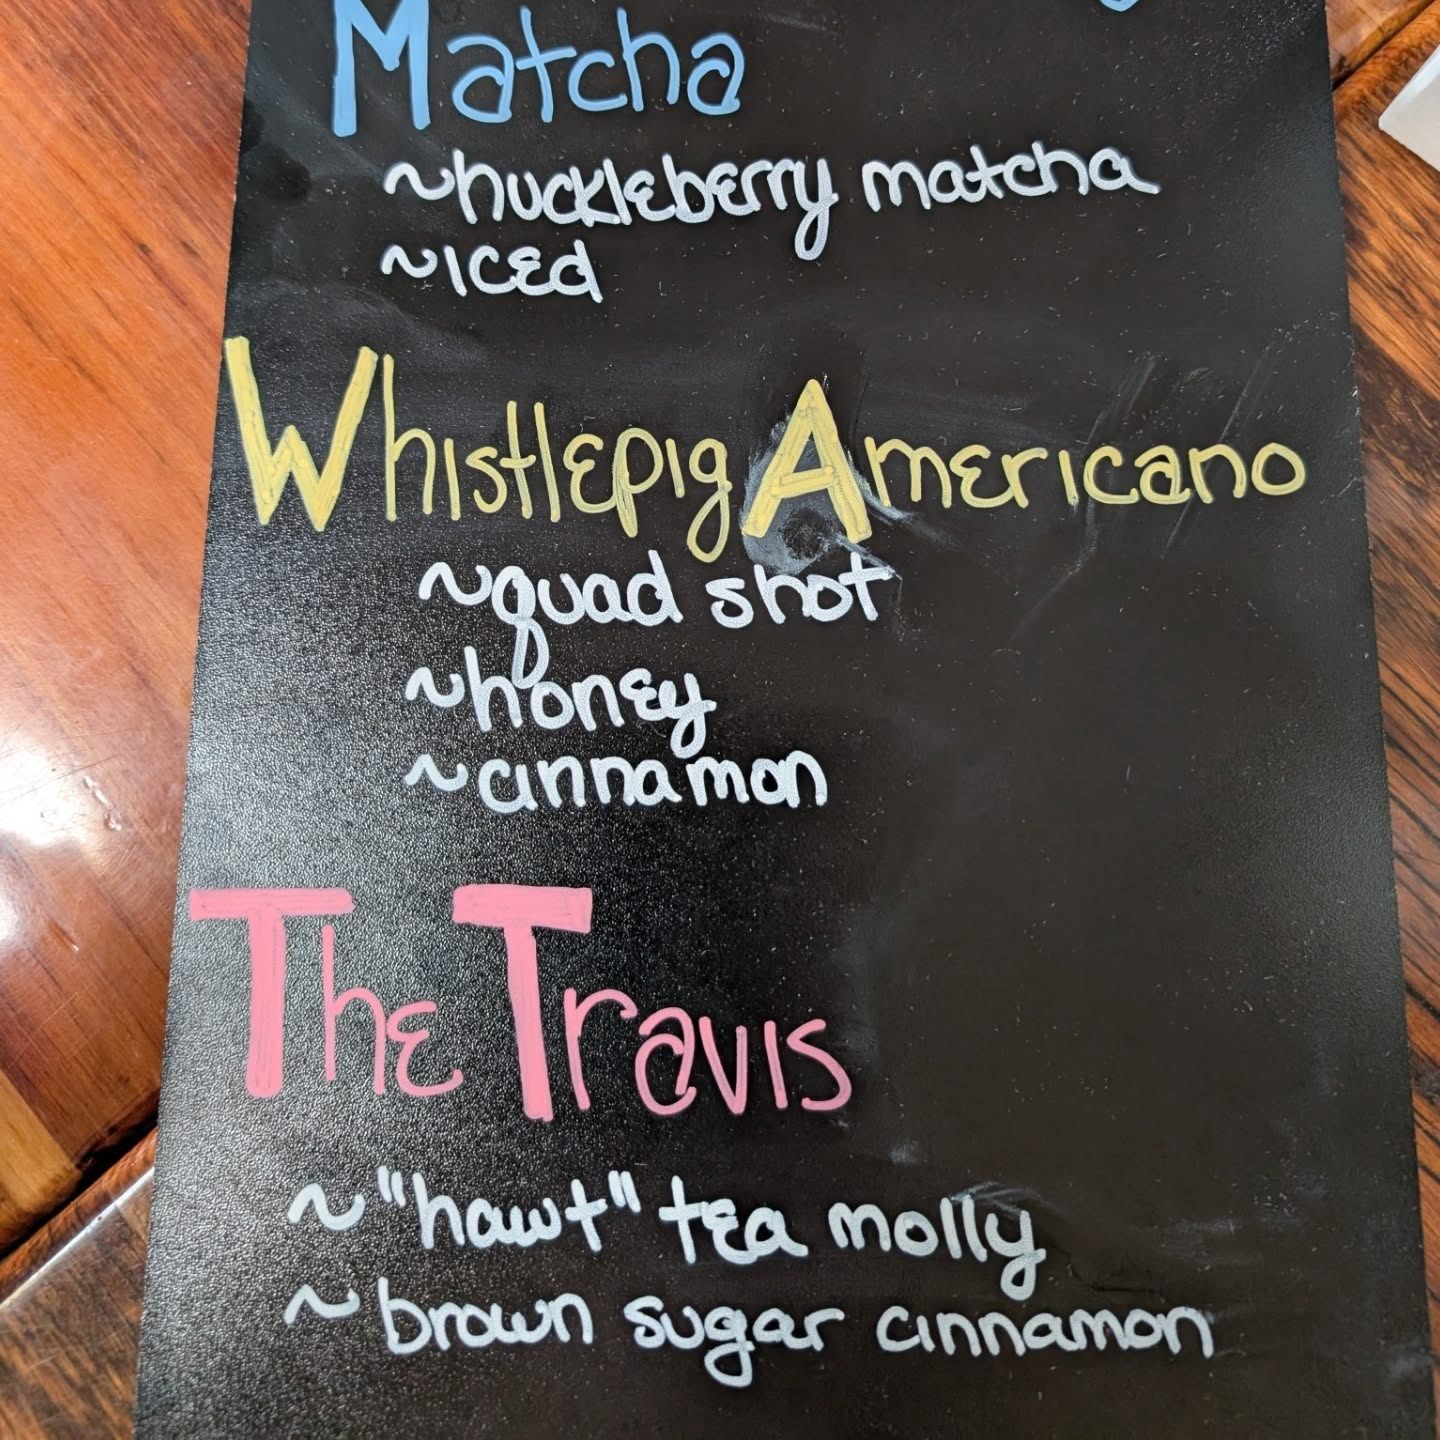 Matcha
~huckleberry matcha
~iced
Whistlepig Americano
~quad shot
~honey
~cinnamon
The Travis
~"hawt" tea molly
~brown sugar cinnamon